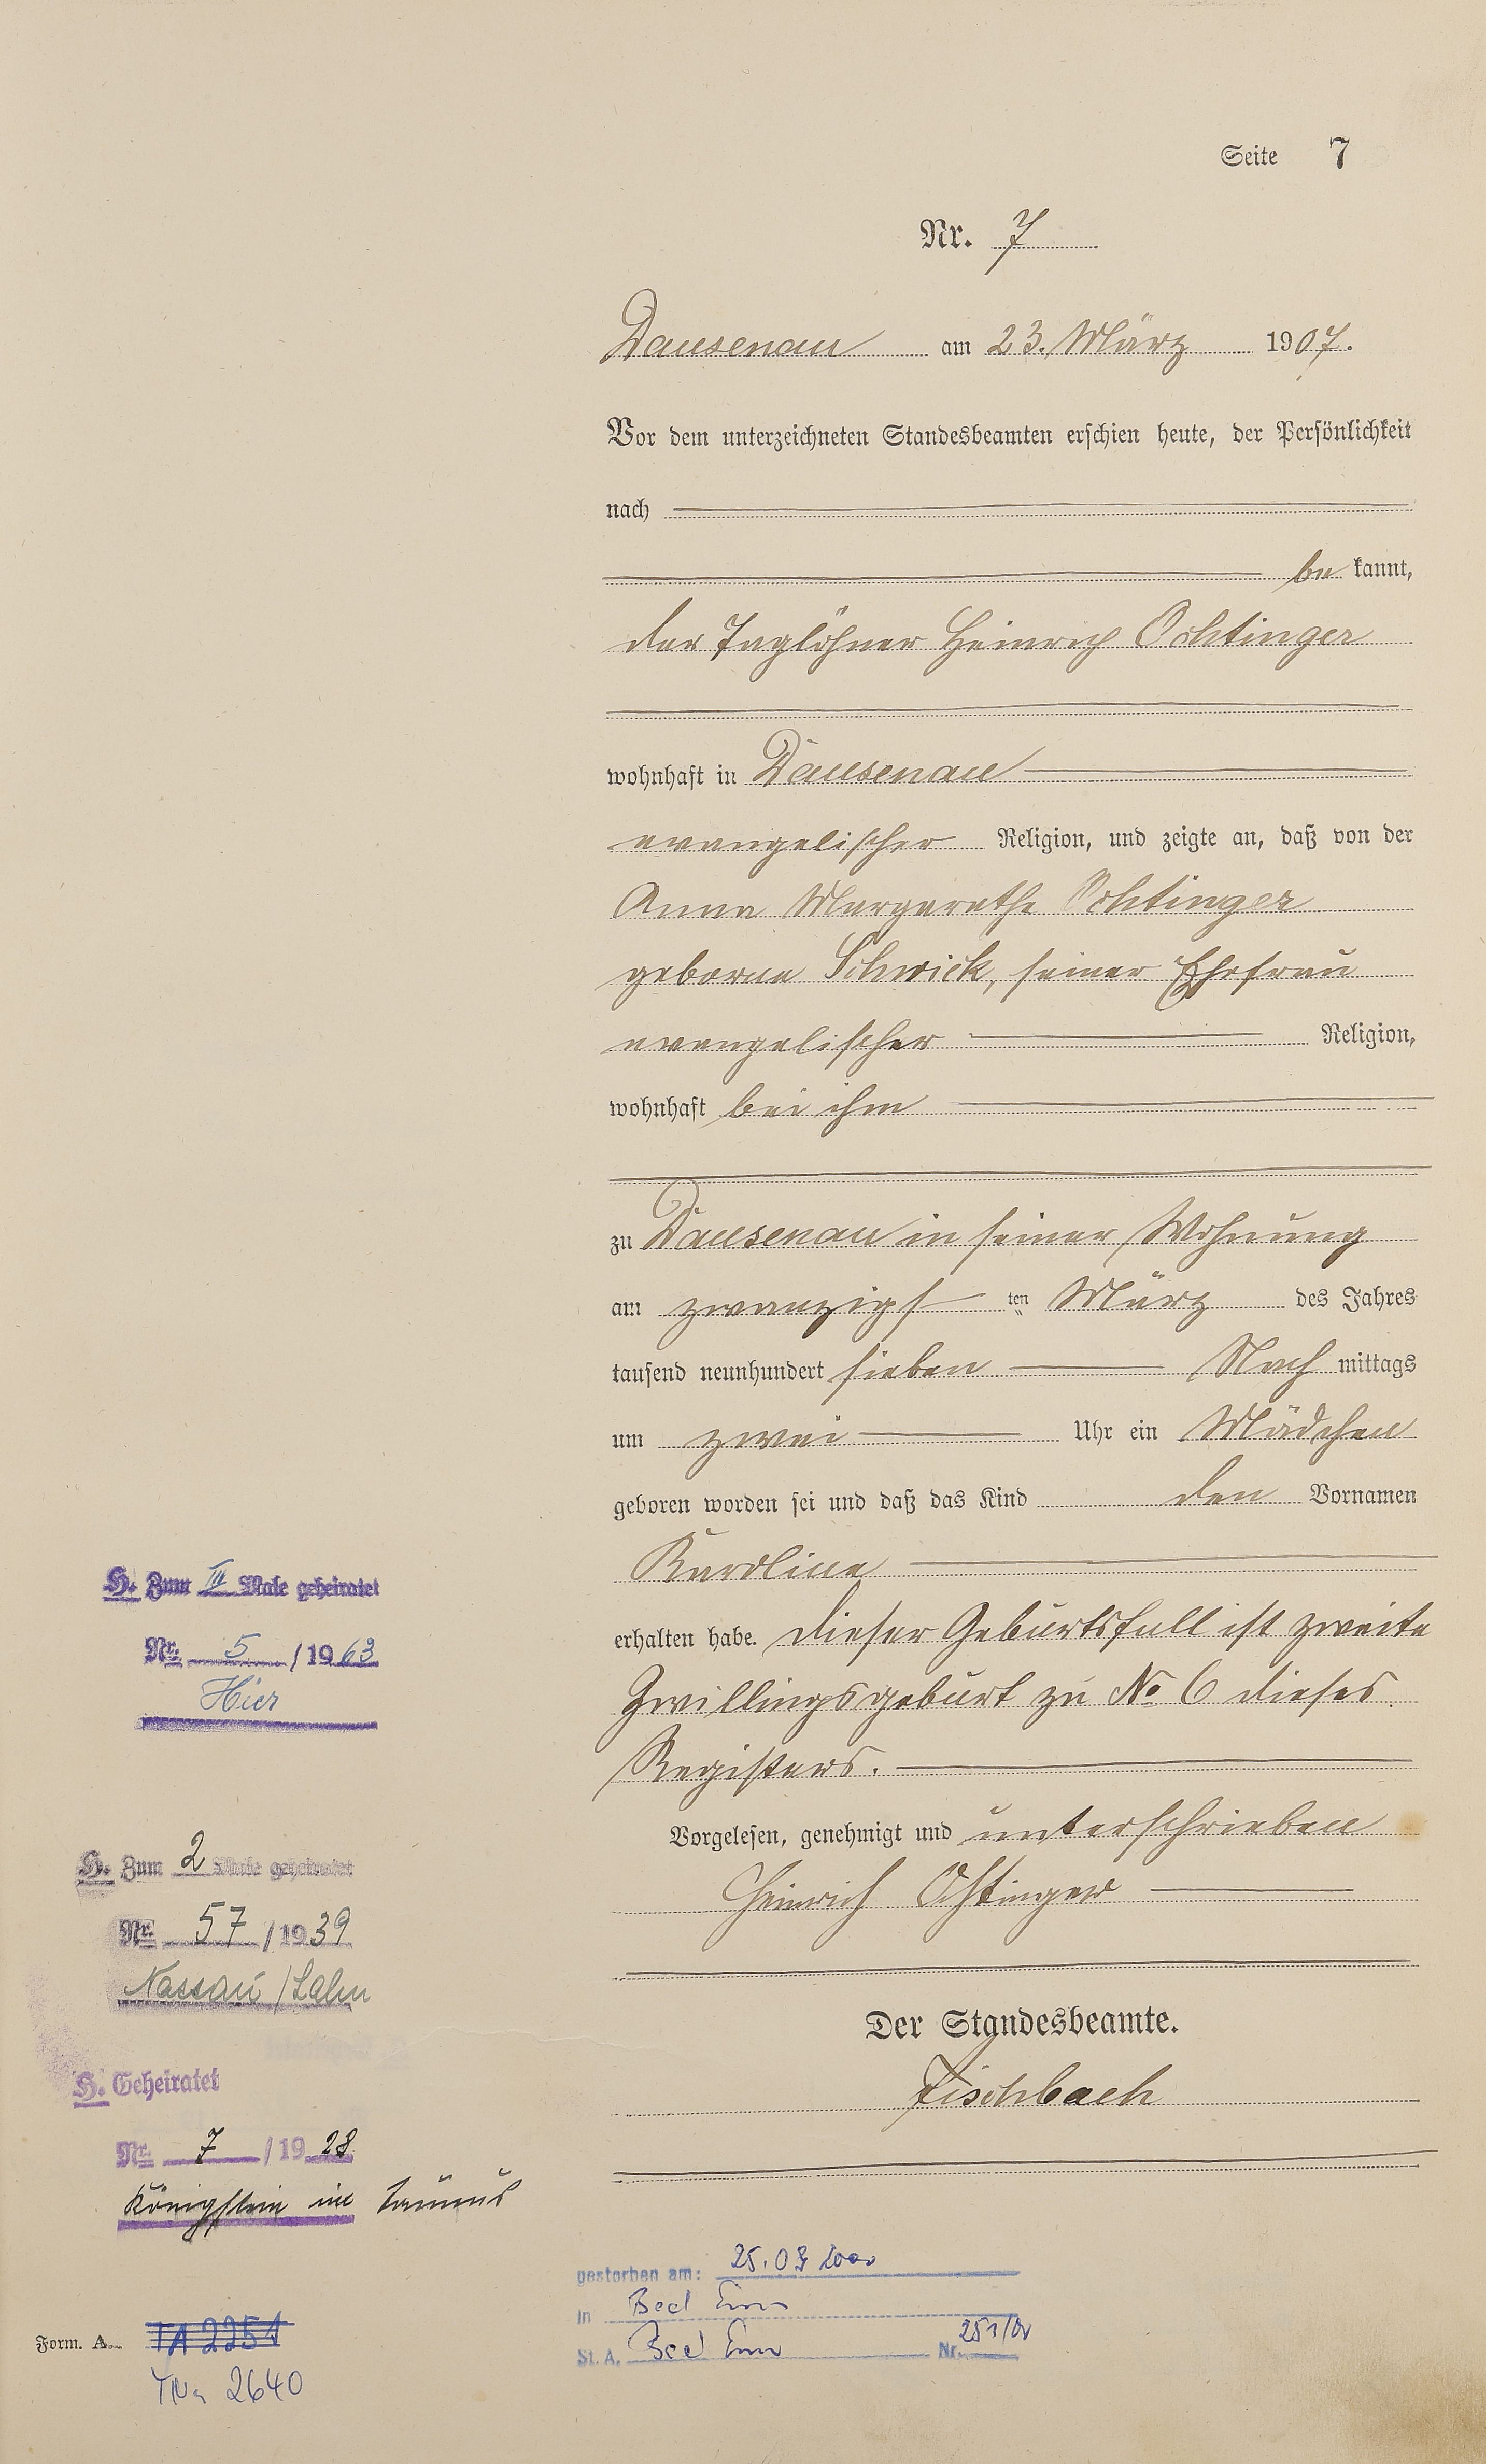 Seite 7
Nr. 7
Dausenau am 23. März 1907.
Vor dem unterzeichneten Standesbeamten erschien heute, der Persönlichkeit
nach
be kannt,
der Taglöhner Heinrich Ochtinger
wohnhaft in Dausenau
evangelischer Religion, und zeigte an, daß von der
Anna Margarethe Ochtinger
geborne Schwick, seiner Ehefrau
evangelischer Religion,
wohnhaft bei ihm
zu Dausenau in seiner Wohnung
am zwanzigs ten März des Jahres
tausend neunhundert sieben Nach mittags
um zwei Uhr ein Mädchen
geboren worden sei und daß das Kind den Vornamen
Karoline
erhalten habe. Dieser Geburtsfall ist zweite
Zwillingsgeburt zu No 6 dieses
Registers.
Vorgelesen, genehmigt und unterschrieben
Heinrich Ochtinger
Der Standesbeamte.
Fischbach
H. Zum III Male geheiratet
Nr. 5 / 1963
Hier
H. Zum 2 Male geheiratet
Nr. 57 / 1939
Nassau / Lahn
H. Geheiratet
Nr. 7 / 1928
Königstein im Taunus
gestorben am: 25.03 2000
in Bad Ems
St. A. Bad Ems Nr. 251/00
Form. A. TA 2251
2640